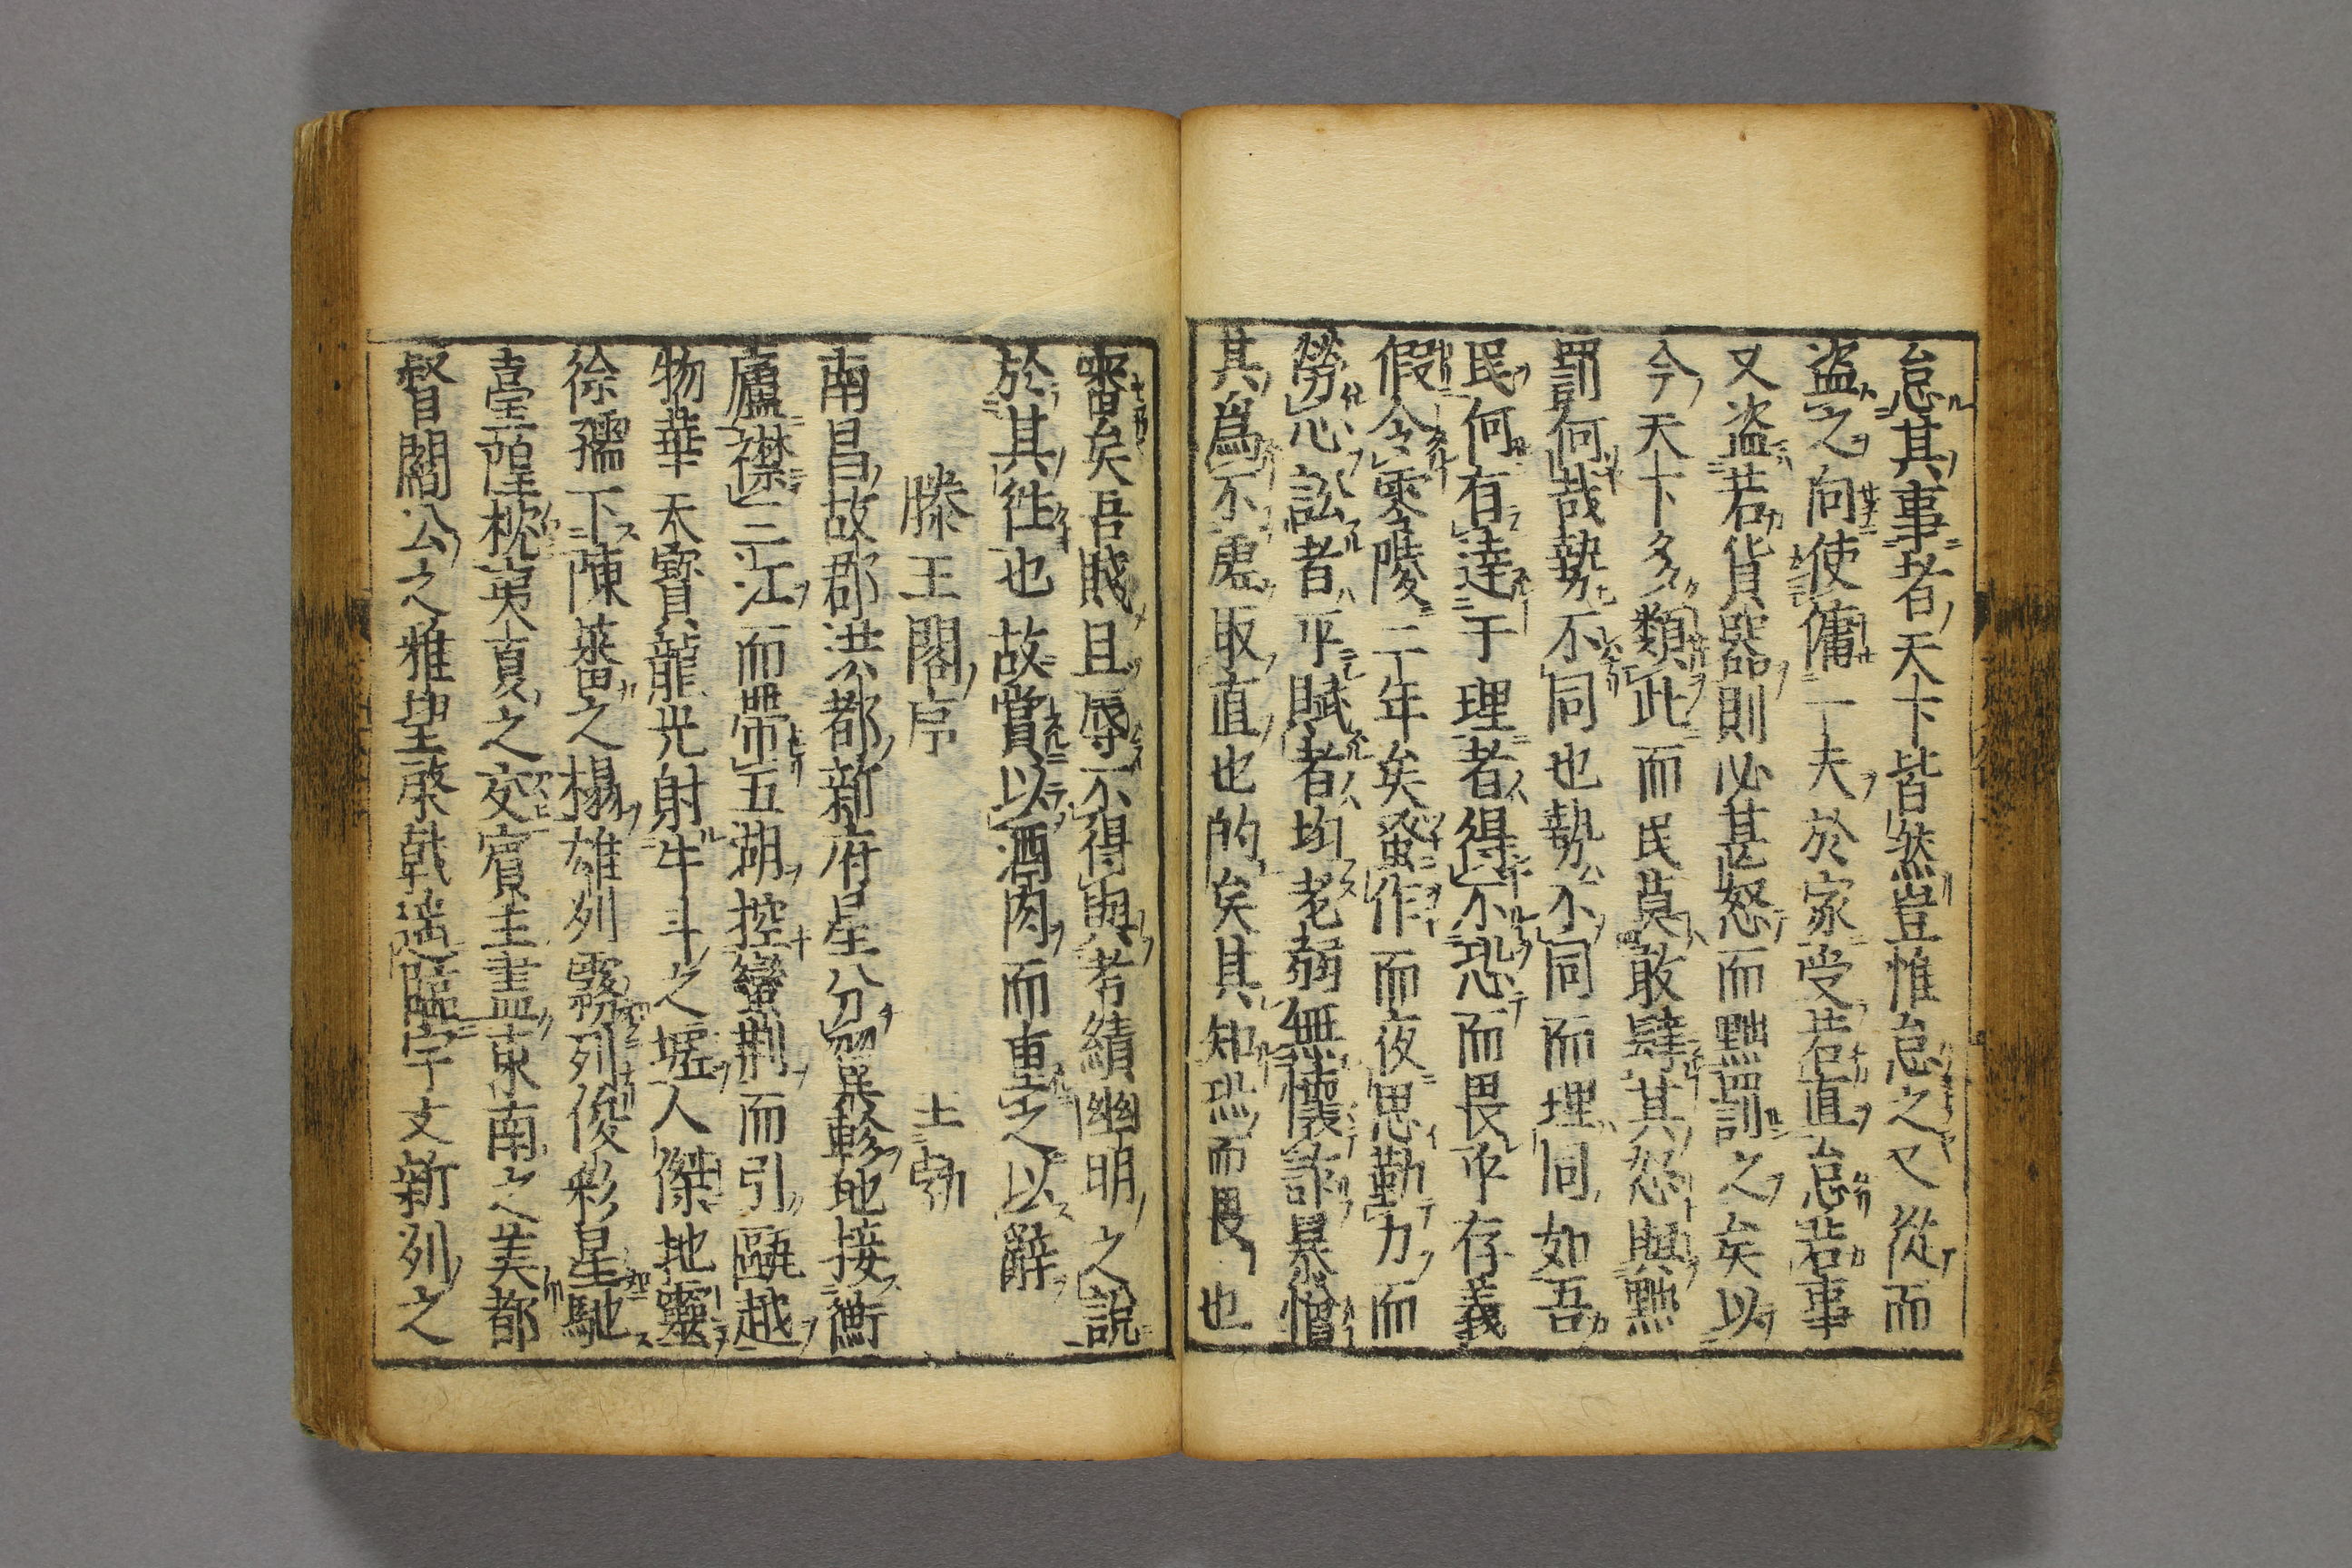 怠其事者天下皆然豈惟怠之又從而
盗之向使傭一夫於家受若直怠若事
又盗若貨器則必甚怒而黜罰之矣以
今天下多類此而民莫敢肆其怒與黜
罰何哉勢不同也勢不同而理同如吾
民何有達于理者得不恐而畏乎存義
假令零陵二年矣蚤作而夜思勤力而
勞心訟者平賦者均老弱無懷詐暴憎
其爲不虚取直也的矣其知恐而畏也
審矣吾賤且辱不得與考績幽明之說
於其徃也故賞以酒肉而重之以辭
滕王閣序 王勃
南昌故郡洪都新府星分翼軫地接衡
廬襟三江而帶五湖控蠻荆而引甌越
物華天寶龍光射牛斗之墟人傑地靈
徐孺下陳蕃之榻雄列霧列俊彩星馳
臺隍枕夷夏之交賓主盡東南之美都
督閻公之雅望棨戟遥臨宇文新列之